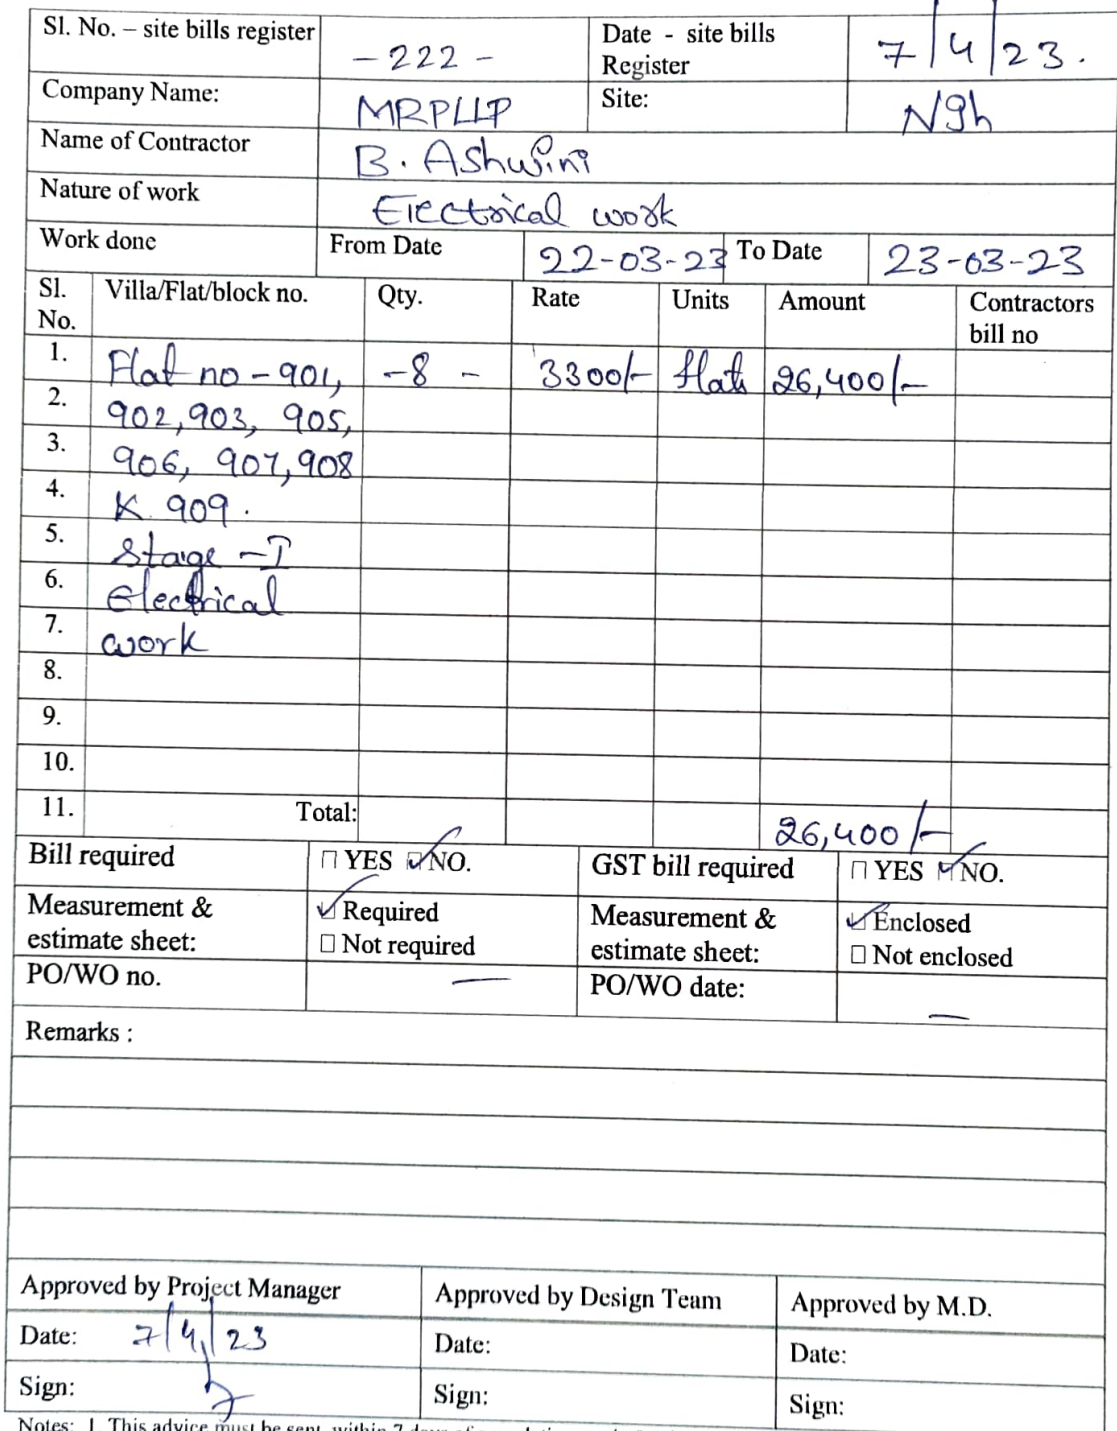 Sl. No. – site bills register -222- Date - site bills Register 7/4/23.
Company Name: MRPLLP Site: Ngh
Name of Contractor B. Ashwini
Nature of work Electrical work
Work done From Date 22-03-23 To Date 23-03-23
Sl. No. Villa/Flat/block no. Qty. Rate Units Amount Contractors bill no
1. Flat no - 901, -8- 3300/- flats 26,400/-
2. 902,903, 905,
3. 906, 907,908
4. & 909.
5. Stage -I
6. Electrical
7. work
8.
9.
10.
11. Total: 26,400/-
Bill required YES NO. GST bill required YES NO.
Measurement & estimate sheet: Required Not required Measurement & estimate sheet: Enclosed Not enclosed
PO/WO no. — PO/WO date: —
Remarks :
Approved by Project Manager Approved by Design Team Approved by M.D.
Date: 7/4/23 Date: Date:
Sign: Sign: Sign:
Notes: 1. This advice must be sent within 7 days of